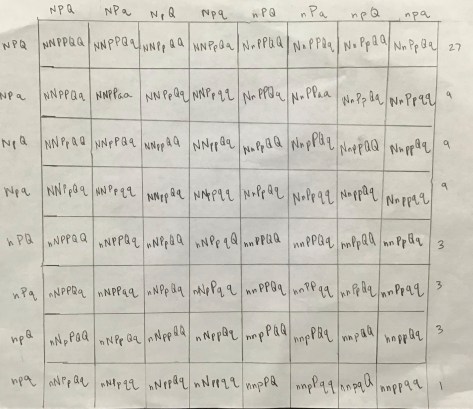 NPQ NPq NpQ Npq nPQ nPq npQ npq
NPQ NNPPQQ NNPPQq NNPpQQ NNPpQq NnPPQQ NnPPQq NnPpQQ NnPpQq 27
NPq NNPPQq NNPPqq NNPpQq NNPpqq NnPPQq NnPPqq NnPpQq NnPpqq 9
NpQ NNPpQQ NNPpQq NNppQQ NNppQq NnPpQQ NnpPQq NnppQQ NnppQq 9
Npq NNPpQq NNPpqq NNppQq NNppqq NnPpQq NnPpqq NnppQq Nnppqq 9
nPQ nNPPQQ nNPPQq nNPpQQ nNPpqQ nnPPQQ nnPPQq nnPpQQ nnPpQq 3
nPq nNPPQq nNPPqq nNPpQq nNpPqq nnPPQq nnPPqq nnPpQq nnPpqq 3
npQ nNpPQQ nNPpQq nNppQQ nNppQq nnpPQQ nnpPQq nnpQQ nnppQq 3
npq nNPpQq nNPpqq nNppQq nNppqq nnpPQ nnpPqq nnpqQ nnppqq 1